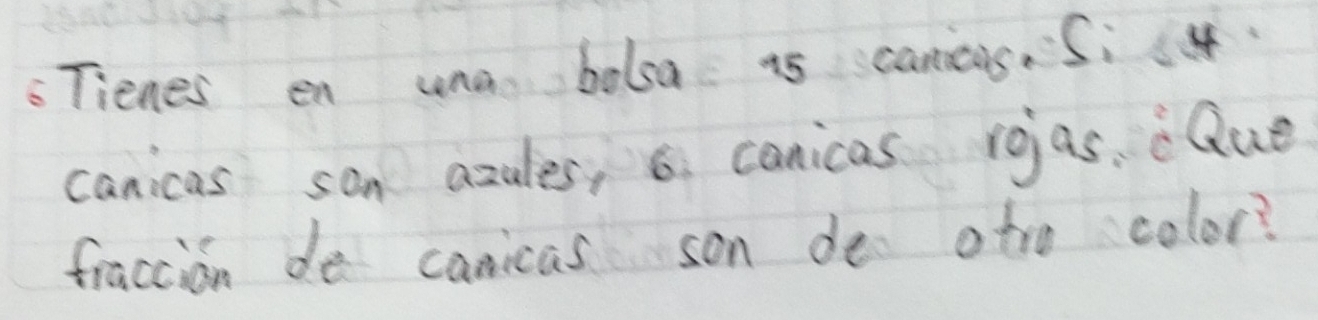 6 Tienes en una bolsa 15 canicas. Si 4
canicas son azules, 6 canicas rojas. ¿Que
fracción de canicas son de otro color?